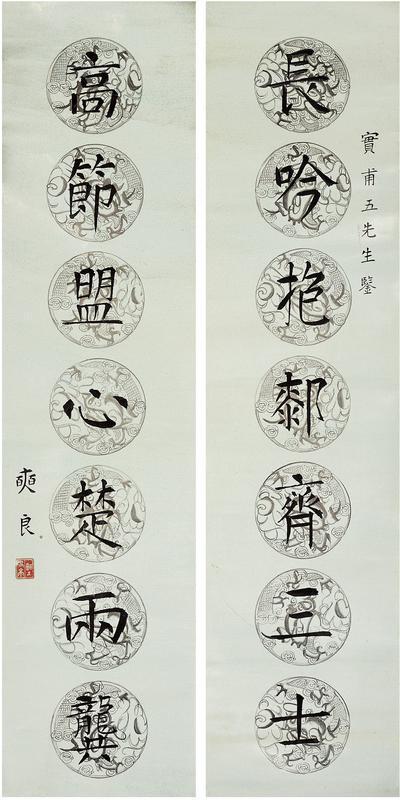 實甫五先生鑒
長吟抱䣛齊三士
高節盟心楚兩龔
奭良